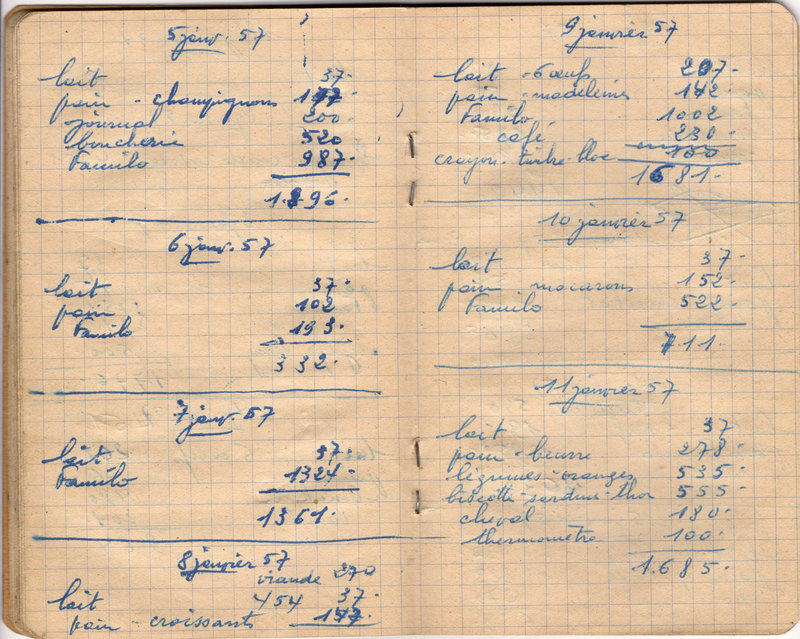 5 janv. 57
lait 37.
pain - champignons
journal 200.
boucherie 520
Familo 987.
1.896.
6 janv. 57
lait 37.
pain 102
Familo 193.
332.
7 janv. 57
lait 37.
Familo 1324.
1361.
8 janvier 57
viande 270
lait 454 37.
pain - croissants 147.
9 janvier 57
lait - 6 œufs 207.
pain - madeleines 142.
Familo 1002
café 230.
crayon - timbre - bloc 100
1681.
10 janvier 57
lait 37.
pain - macarons 152.
Familo 522.
711.
11 janvier 57
lait 37
pain - beurre 278.
légumes - oranges 535.
biscotte - sardine - thon 555.
cheval 180.
thermomètre 100.
1.685.